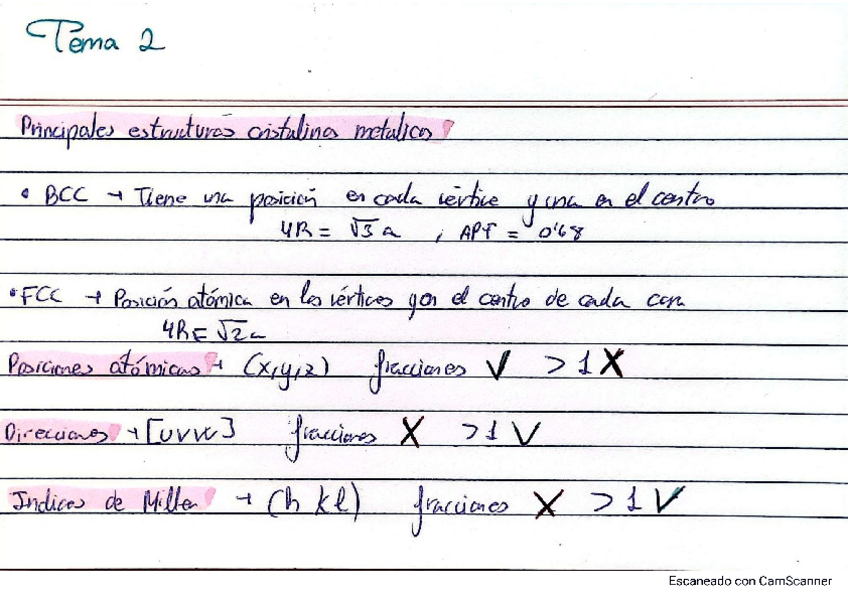 Tema 2
Principales estructuras cristalinas metalicas
• BCC → Tiene una posición en cada vértice y una en el centro
4R = √3 a , APF = 0'68
• FCC → Posición atómica en los vértices y en el centro de cada cara
4R = √2 a
Posiciones atómicas → (x,y,z) fracciones ✓ >1 X
Direcciones → [u v w] fracciones X >1 ✓
Indices de Miller → (h k l) fracciones X >1 ✓
Escaneado con CamScanner